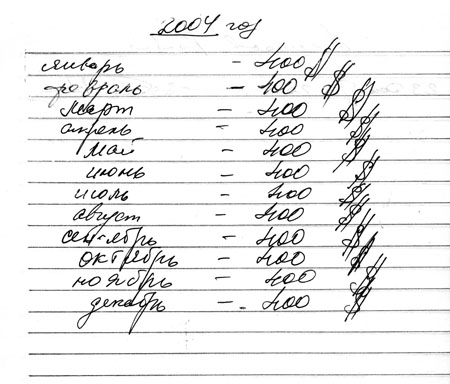 2004 год
январь - 400 $
февраль - 400 $
март - 400 $
апрель - 400 $
май - 400 $
июнь - 400 $
июль - 400 $
август - 400 $
сентябрь - 400 $
октябрь - 400 $
ноябрь - 400 $
декабрь - 400 $